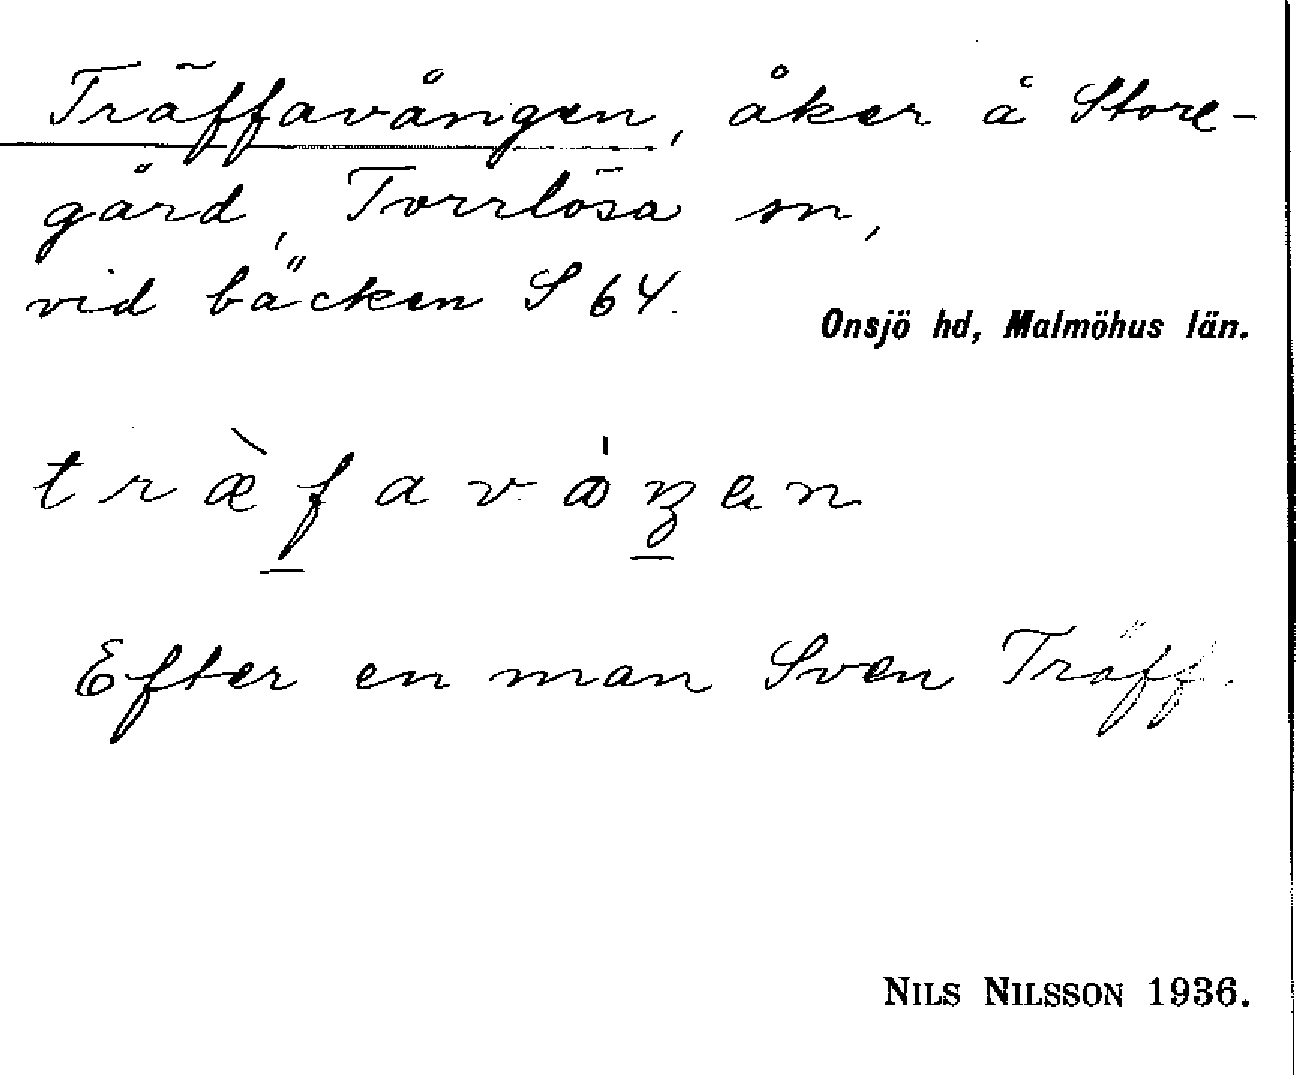 Träffavången, åker å Store-
gård, Torrlösa sn,
vid bäcken S 64.
Onsjö hd, Malmöhus län.
træ̀f̲avɷ́ŋ̲en
Efter en man Sven Träff.
NILS NILSSON 1936.